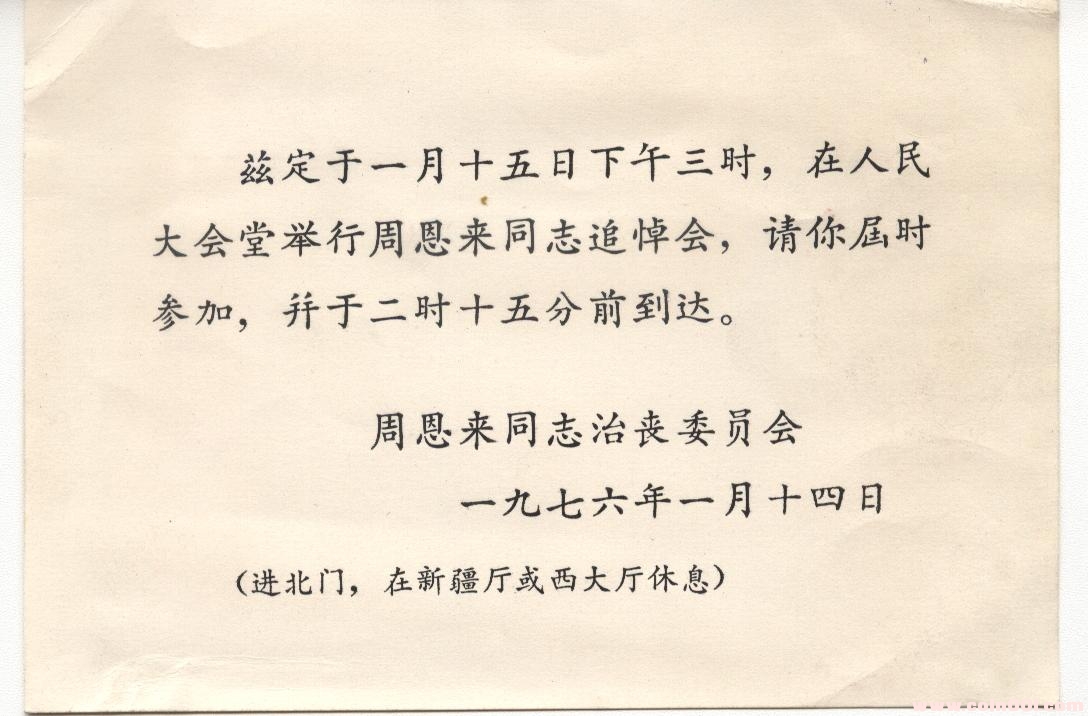 兹定于一月十五日下午三时，在人民
大会堂举行周恩来同志追悼会，请你届时
参加，并于二时十五分前到达。
周恩来同志治丧委员会
一九七六年一月十四日
（进北门，在新疆厅或西大厅休息）